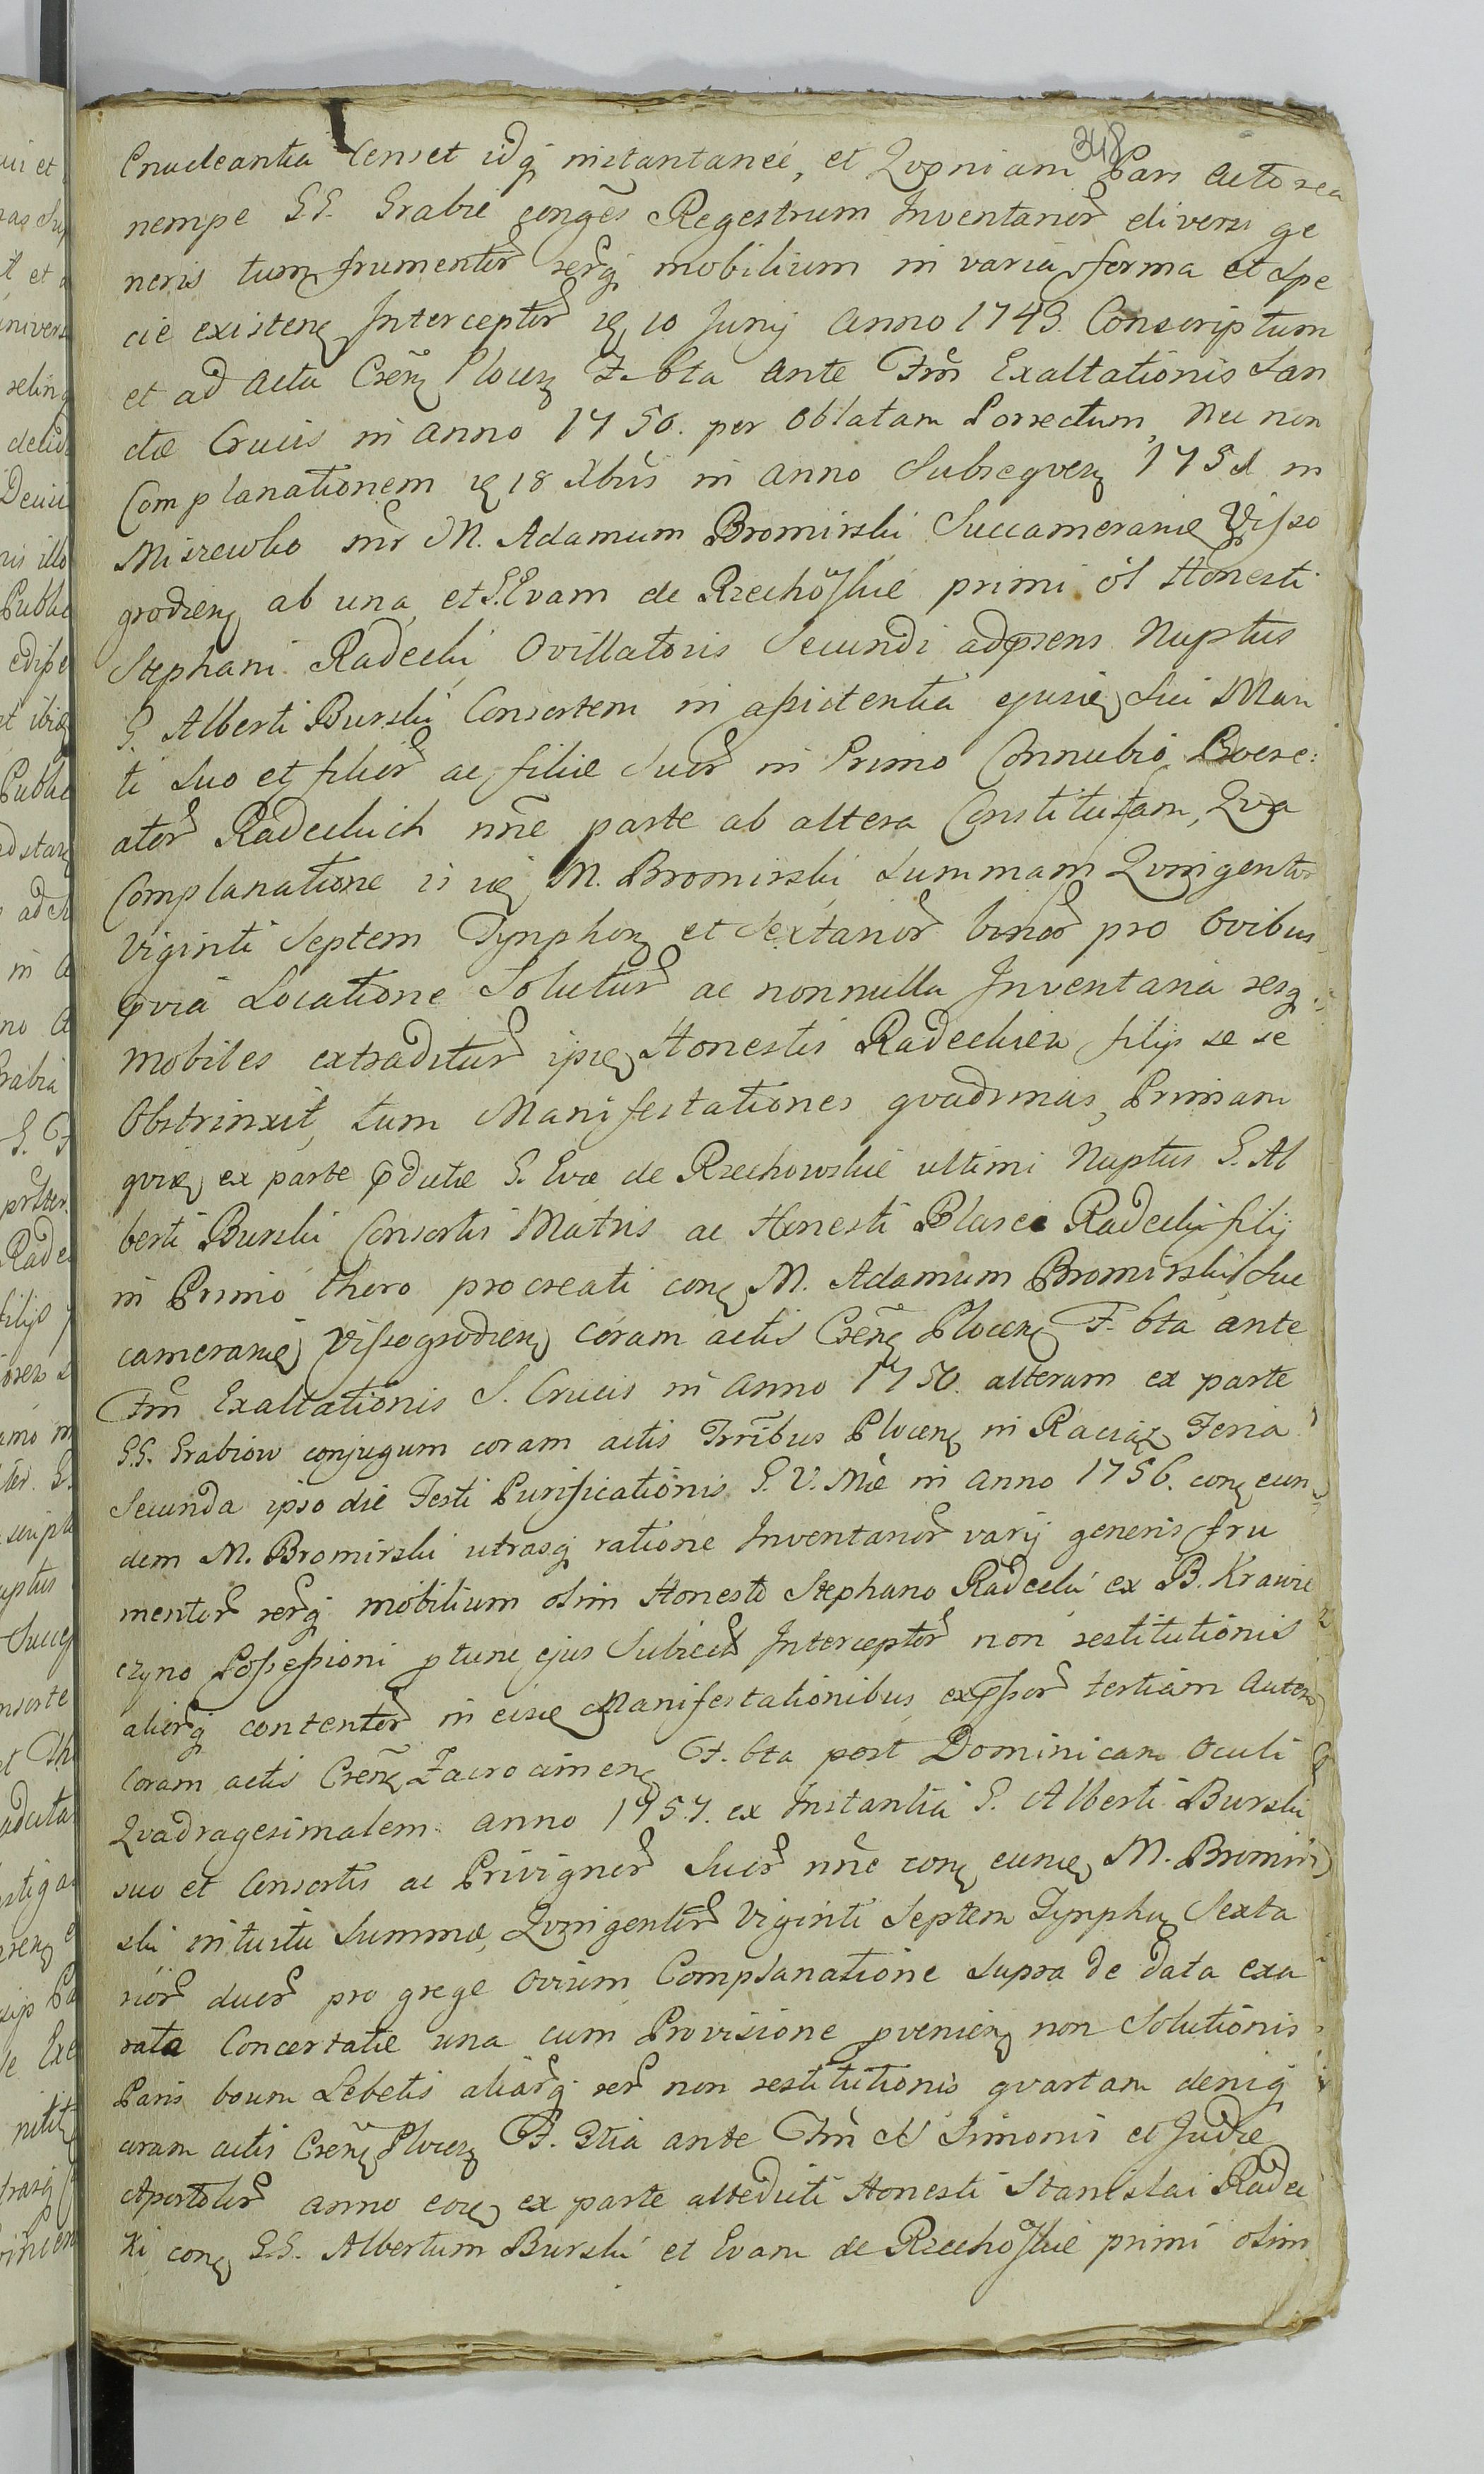 348
Enucleantia Censet idq instantanee, et Qvoniam Pars Actorea
nempe GG. Grabie conges Regestrum Inventarior diversi ge
neris tum frumentor rerq mobilium in varia forma et Spe
cie existen Interceptor 10 Junij Anno 1749. Conscriptum
et ad Acta Csen Plocen F. 6ta ante Fm Exaltationis San
ctæ Crucis in Anno 1750. per Oblatam Porrectum, Nec non
Complanationem 18 Xbris in Anno Subseqven 1751 in
Miszewko inr M. Adamum Bromirski Succamerarie Visso
grodien ab una, et G. Evam de Rzechowskie primi ol Honesti
Stephani Radecki Ovillatoris Secundi adpræsens Nuptus
G. Alberti Burski Consortem in assistentia ejusd Sui Mari
ti Suo et filior ac filiæ Suor in Primo Connubio Procre:
ator Radeckich nne parte ab altera Constitutam, Qva
Complanatione is id M. Bromirski Summam Qvingentor
Viginti Septem Tynphon et Sextanior binor pro Ovibus
qvia Locatione Solutur ac nonnulla Inventaria resq
mobiles extraditur ipis Honestis Radeckim filijs se se
Obstrinxit, tum Manifestationes qvadrinas, Primam
qvid ex parte pductæ G. Evæ de Rzechowskie ultimi Nuptus G. Al
berti Burski Consortis Matris ac Honesti Blasei Radecki filij
in Primo thoro procreati con M. Adamum Bromirski Suc
camerarie Vissogrodien coram actis Csen Plocen F. 6ta ante
Fm Exaltationis S. Crucis in Anno 1750. alteram ex parte
GG. Grabiow conjugum coram actis Trribus Plocen in Raciąz Feria
Secunda ipso die Festi Purificationis B. V. Mæ in Anno 1756. con eun
dem M. Bromirski utrasq ratione Inventarior varij generis fru
mentor rerq mobilium olim Honesto Stephano Radecki ex B. Krawie
czyno Possessioni ptunc ejus Subiect Interceptor non restitutionis
aliorq contentor in eisd Manifestationibus expssor tertiam Autem
Coram actis Csen Zacrocimen F. 6ta post Dominicam Oculi
Qvadragesimalem Anno 1757. ex Instantia G. Alberti Burski
suo et Consortis ac Privignor Suor nne con eund M. Bromir
ski intuitu Summæ Qvingentor Viginti Septem Tynphon Sexta
nior duor pro grege Ovium Complanatione Supra de data exa
rata Concertatæ una cum Provisione pvenien non Solutionis
Paris boum Lebetis aliarq rer non restitutionis qvartam deniq
coram actis Csen Plocen F. 3tia ante Fm SS Simonis et Judæ
Apostolor anno eod ex parte altedicti Honesti Stanislai Radec
ki con GG. Albertum Burski et Evam de Rzechowskie primi olim